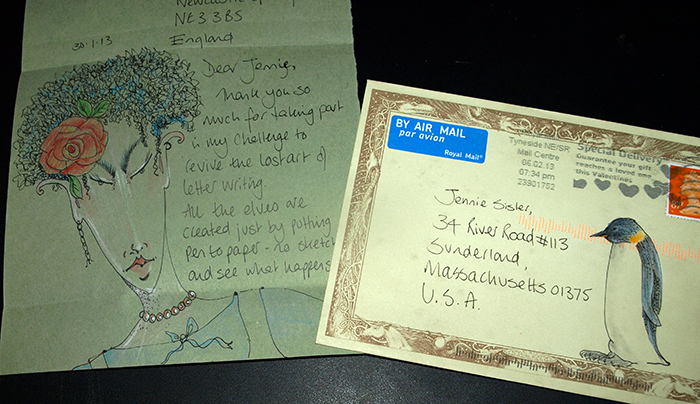 Newcastle
NE3 3BS
England
30.1.13
Dear Jennie,
Thank you so
much for taking part
in my challenge to
revive the lost art of
letter writing.
All the elves are
created just by putting
pen to paper - no sketch
and see what happens
BY AIR MAIL
par avion
Royal Mail®
Tyneside NE/SR
Mail Centre
06.02.13
07:34 pm
23901752
Special Delivery
Guarantee your gift
reaches a loved one
this Valentines
Jennie Sisler,
34 River Road #113
Sunderland,
Massachusetts 01375
U.S.A.